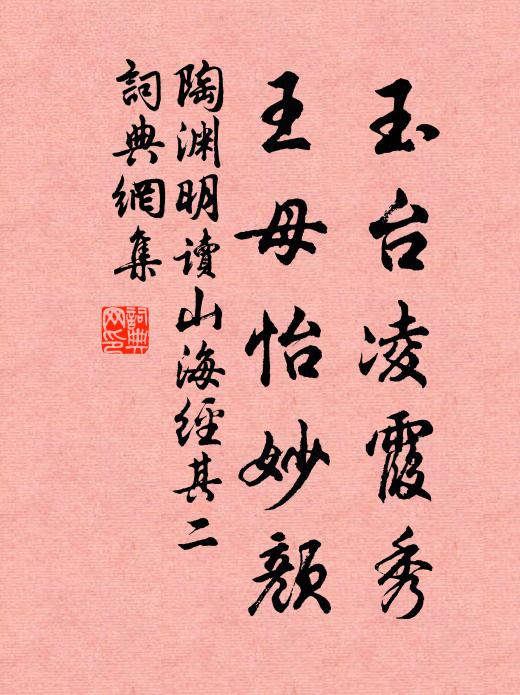 玉台凌霞秀
王母怡妙顔
陶渊明讀山海經其二
詞典網集
詞典
网印